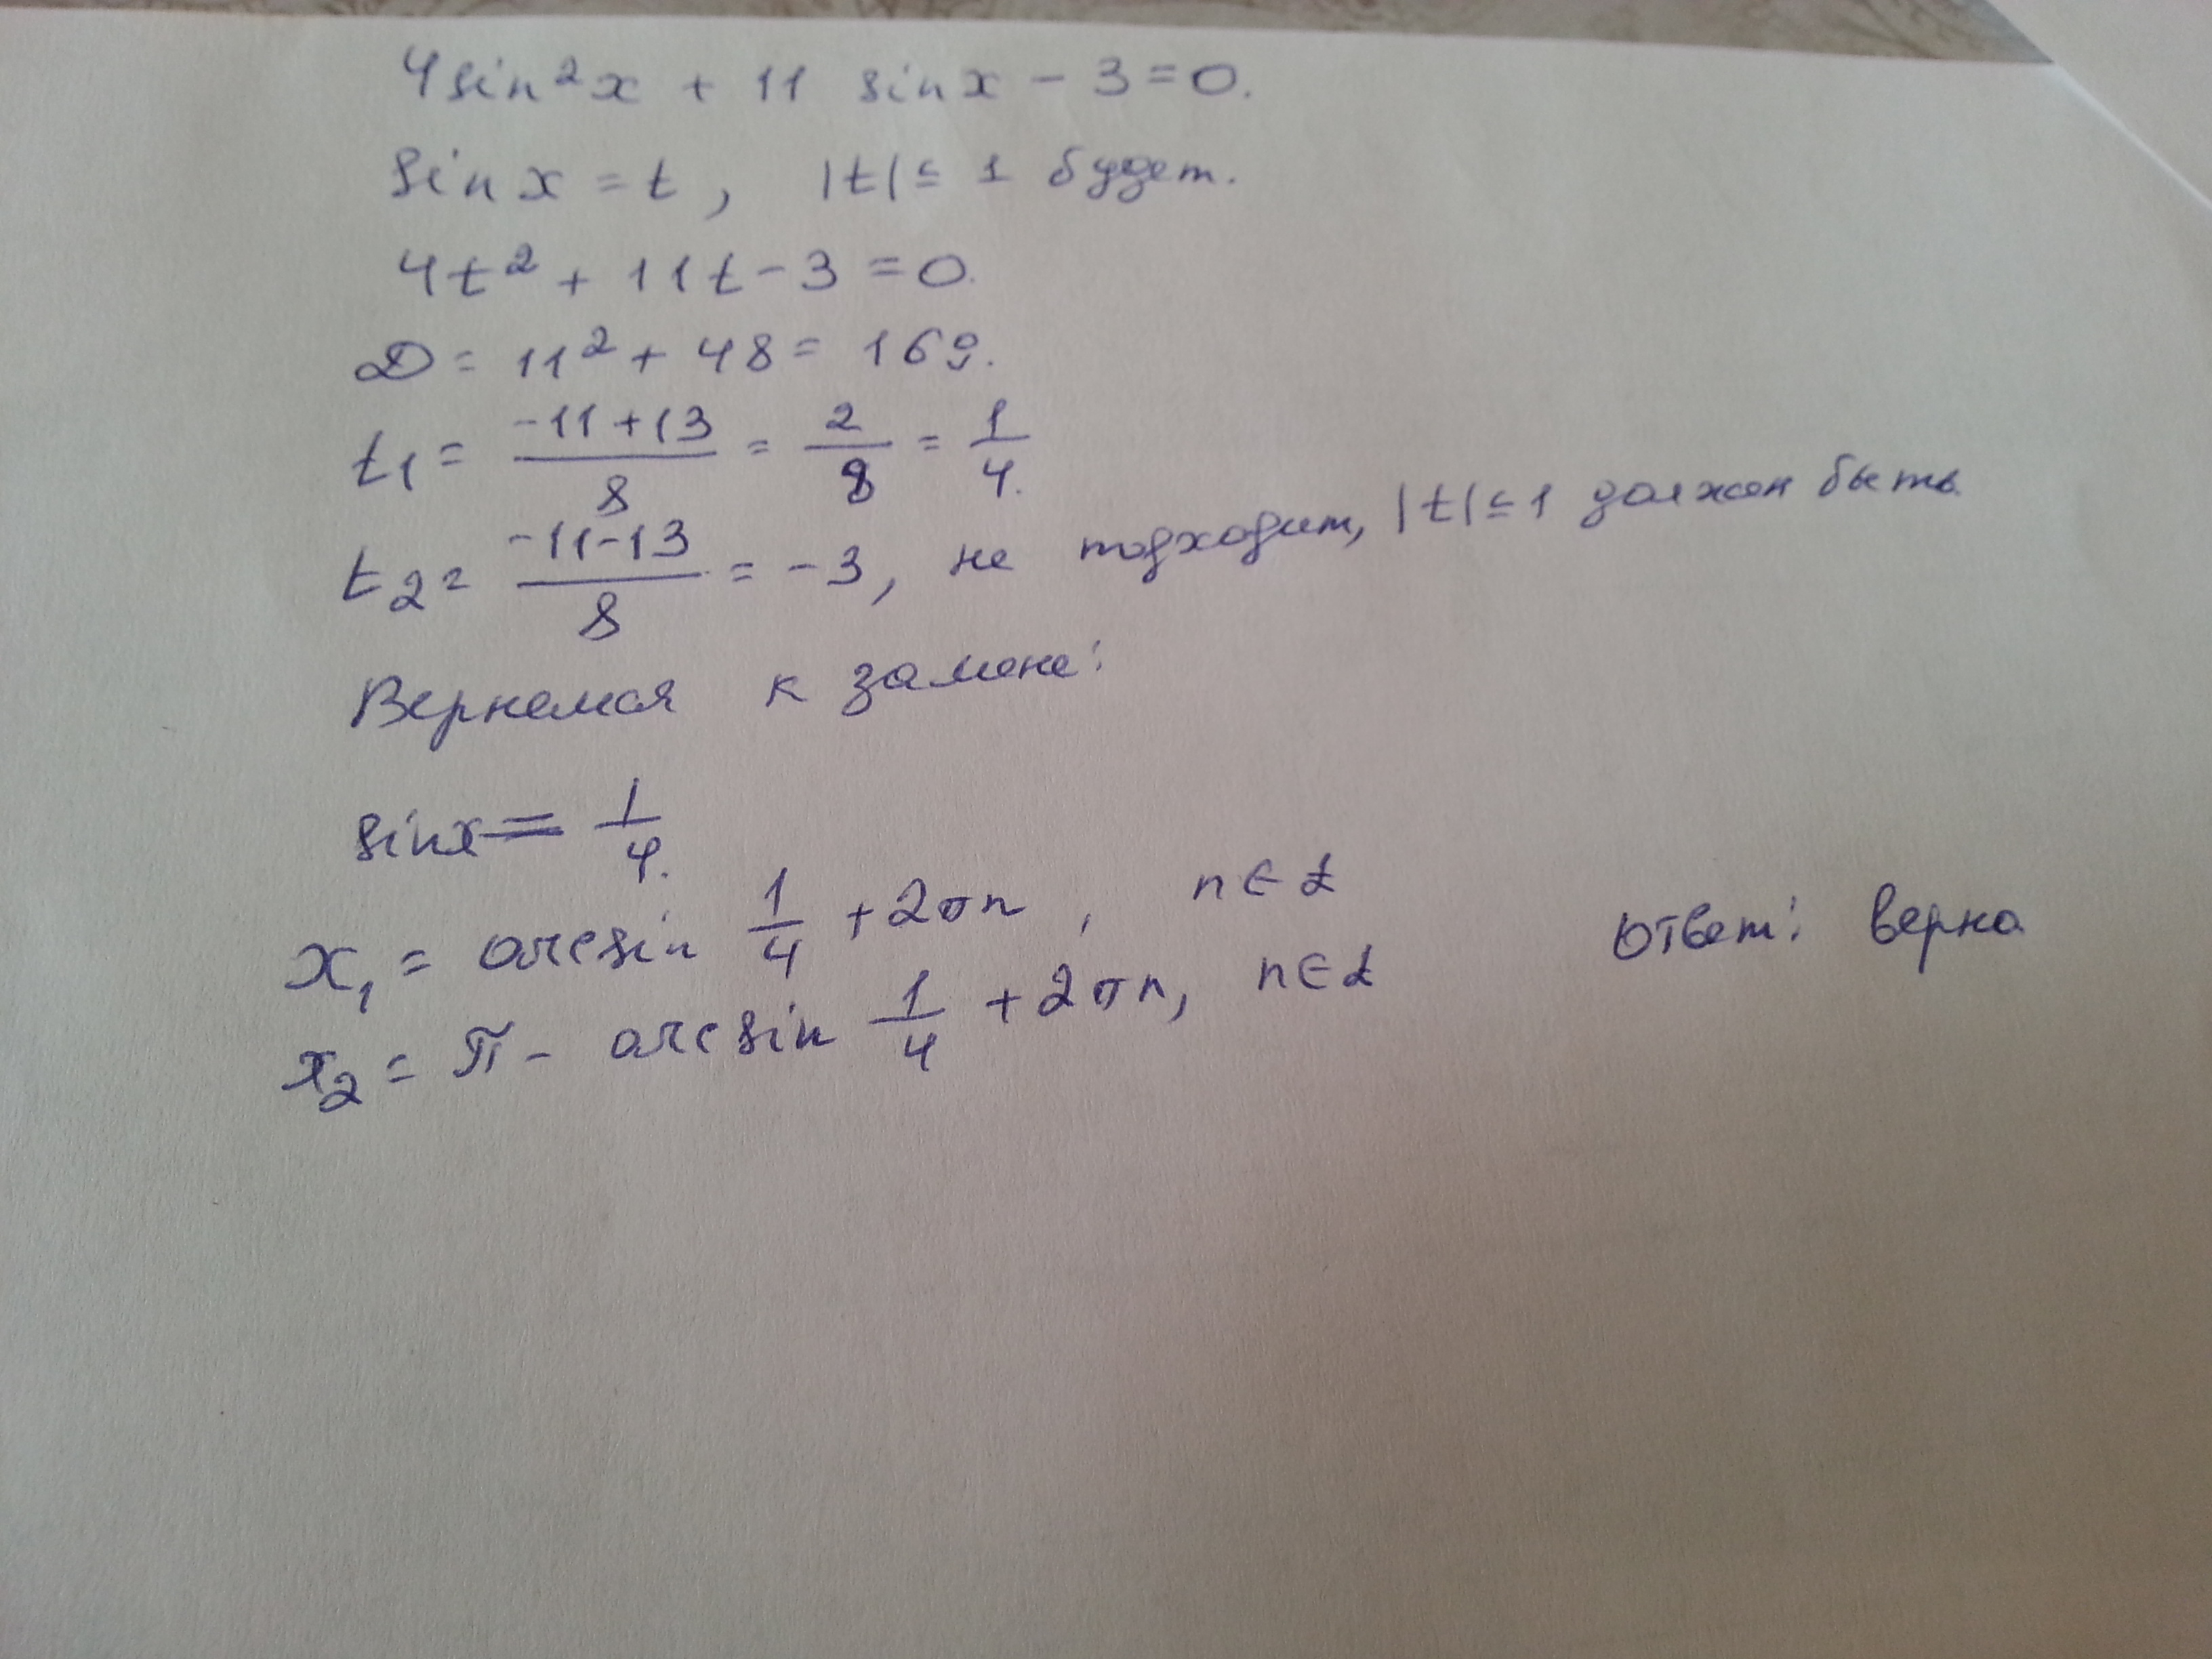 4sin²x + 11 sinx - 3 = 0.
sin x = t, |t| ≤ 1 будет.
4t² + 11t - 3 = 0.
D = 11² + 48 = 169.
t1 = (-11+13)/8 = 2/8 = 1/4.
t2 = (-11-13)/8 = -3, не подходит, |t| ≤ 1 должен быть.
Вернемся к замене:
sinx = 1/4.
x₁ = arcsin 1/4 + 2πn, n∈Z
x₂ = π - arcsin 1/4 + 2πn, n∈Z
Ответ: верно